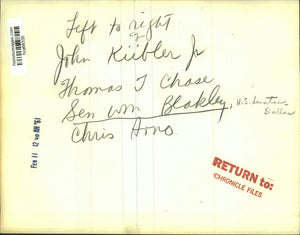 Left to right
John Kübler Jr
Thomas T Chase
Sen Wm Blakley, U.S. Senator
Dallas
Chris
FEB 11 12 40 AM '61
RETURN to:
CHRONICLE FILES